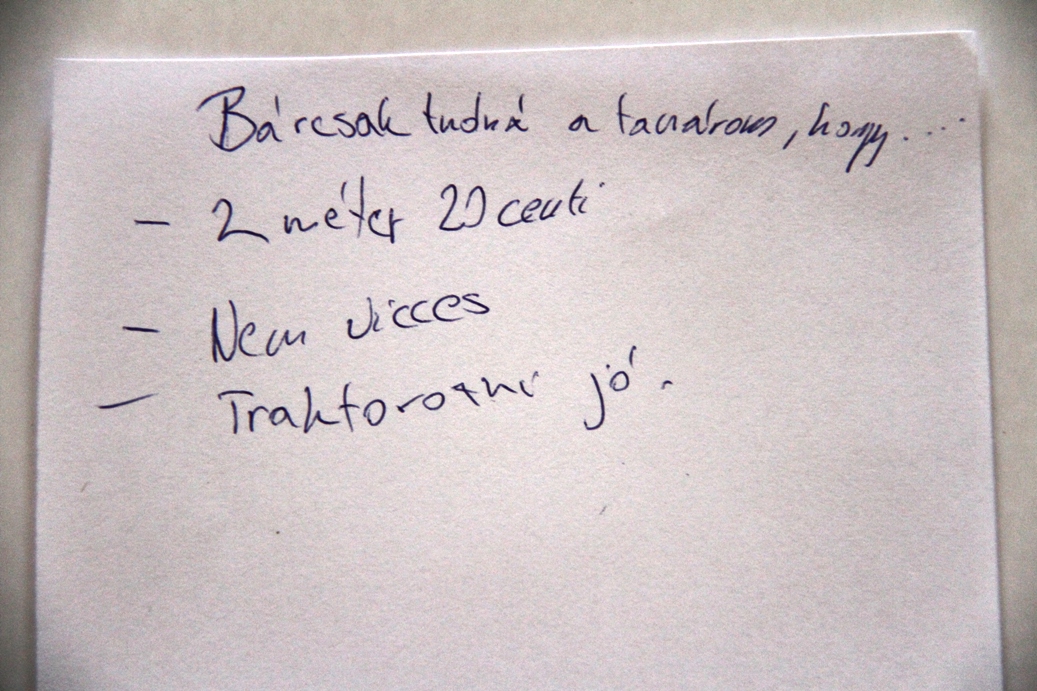 Bárcsak tudná a tanárom, hogy....
- 2 méter 20 centi
- Nem vicces
- Traktorozni jó.